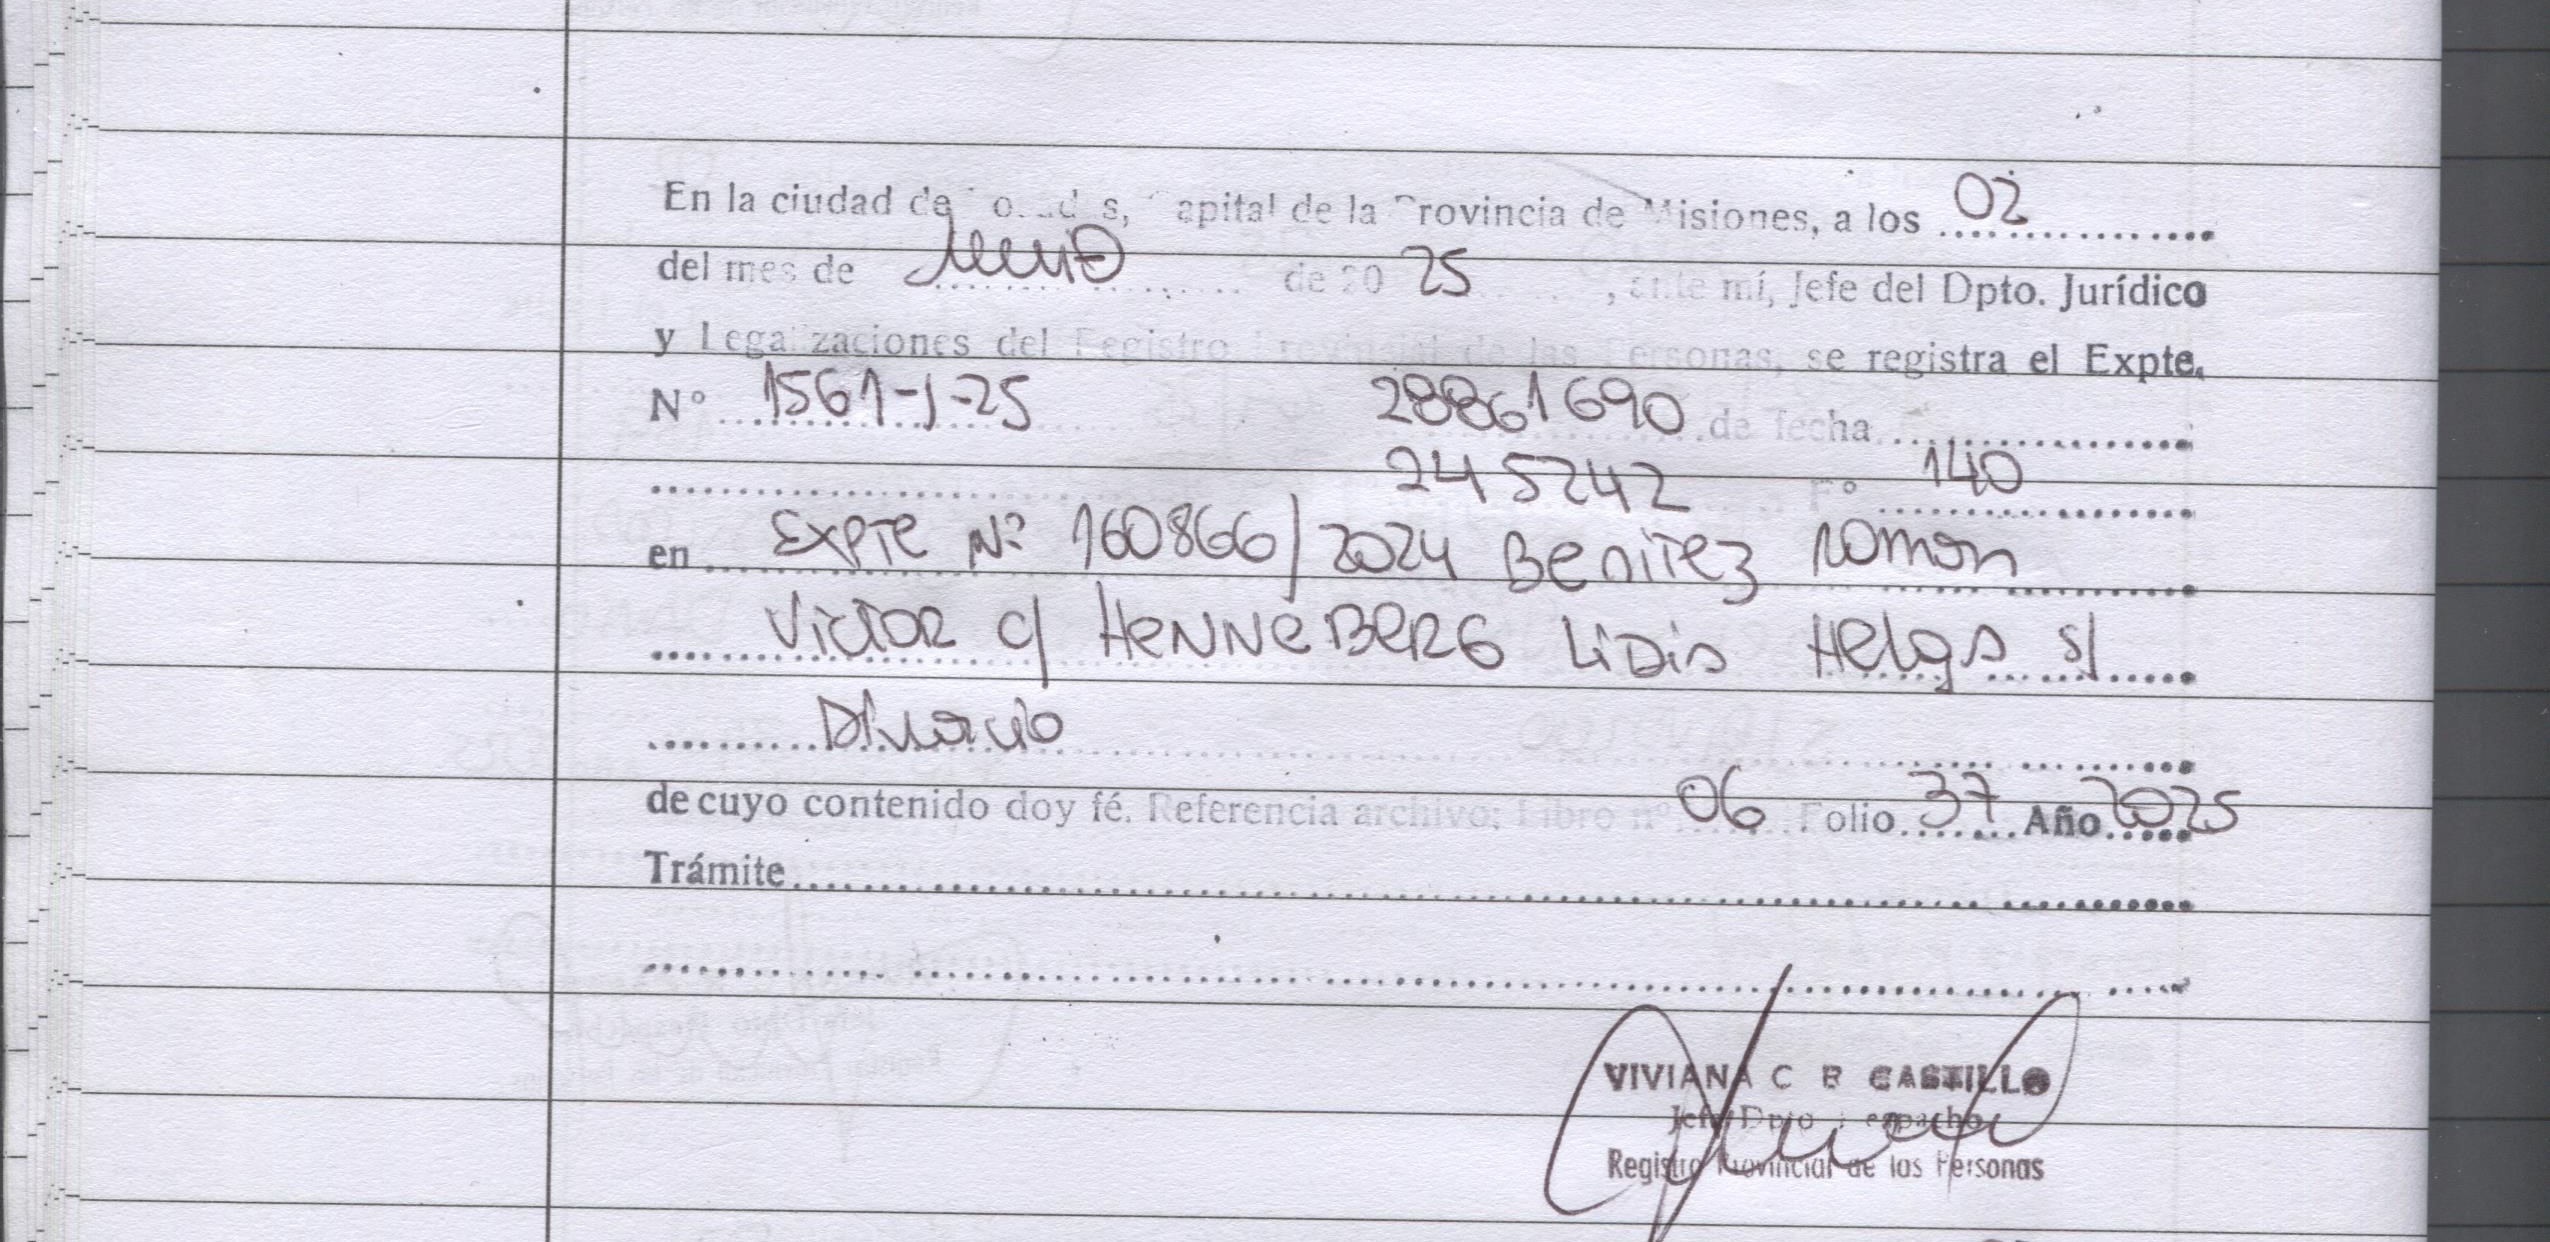 En la ciudad de Posadas, Capital de la Provincia de Misiones, a los 02
del mes de Junio de 20 25, ante mí, Jefe del Dpto. Jurídico
y Legalizaciones del Registro Provincial de las Personas, se registra el Expte.
Nº 1561-J-25 28861690 de fecha
245242 Fº 140
en Expte Nº 160866/2024 Benitez Roman
Victor c/ HENNEBERG Lidia Helga s/
Divorcio
de cuyo contenido doy fé. Referencia archivo: Libro nº 06 Folio 37 Año 2025
Trámite
VIVIANA C B CASTILLO
Jefe Dpto Despacho
Registro Provincial de las Personas